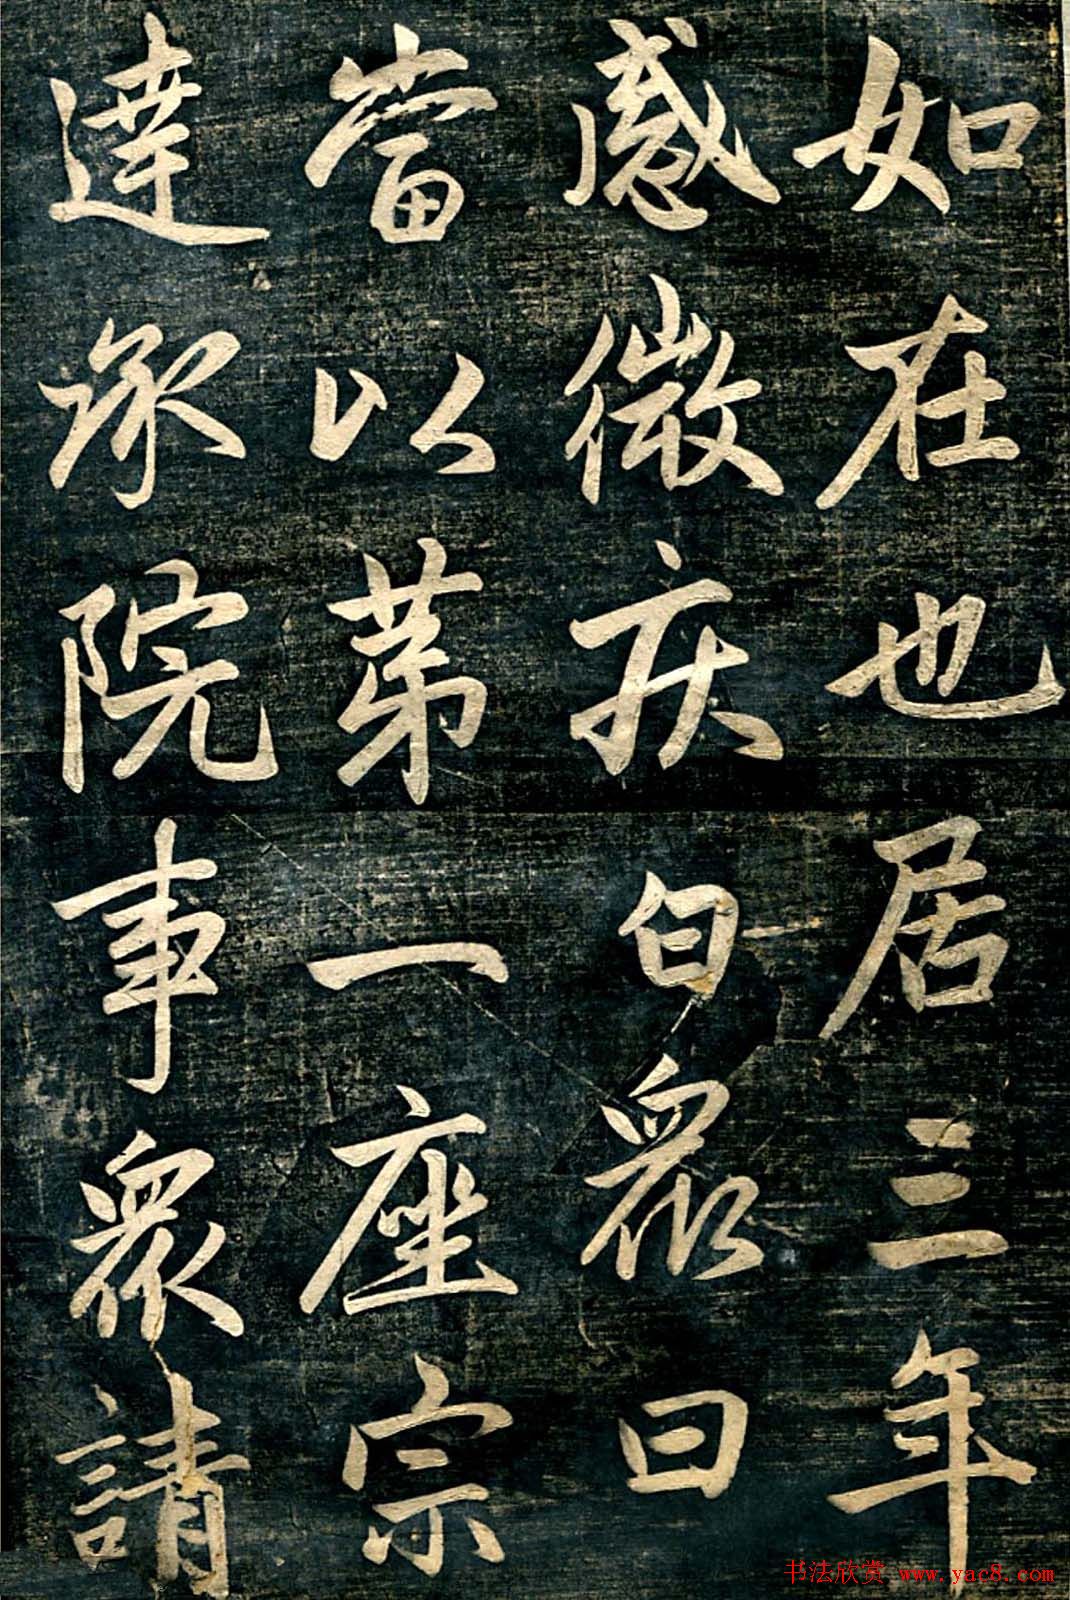 如在也居三年
感微疾白眾曰
當以第一座宗
達承院事眾請
书法欣赏 www.yac8.com